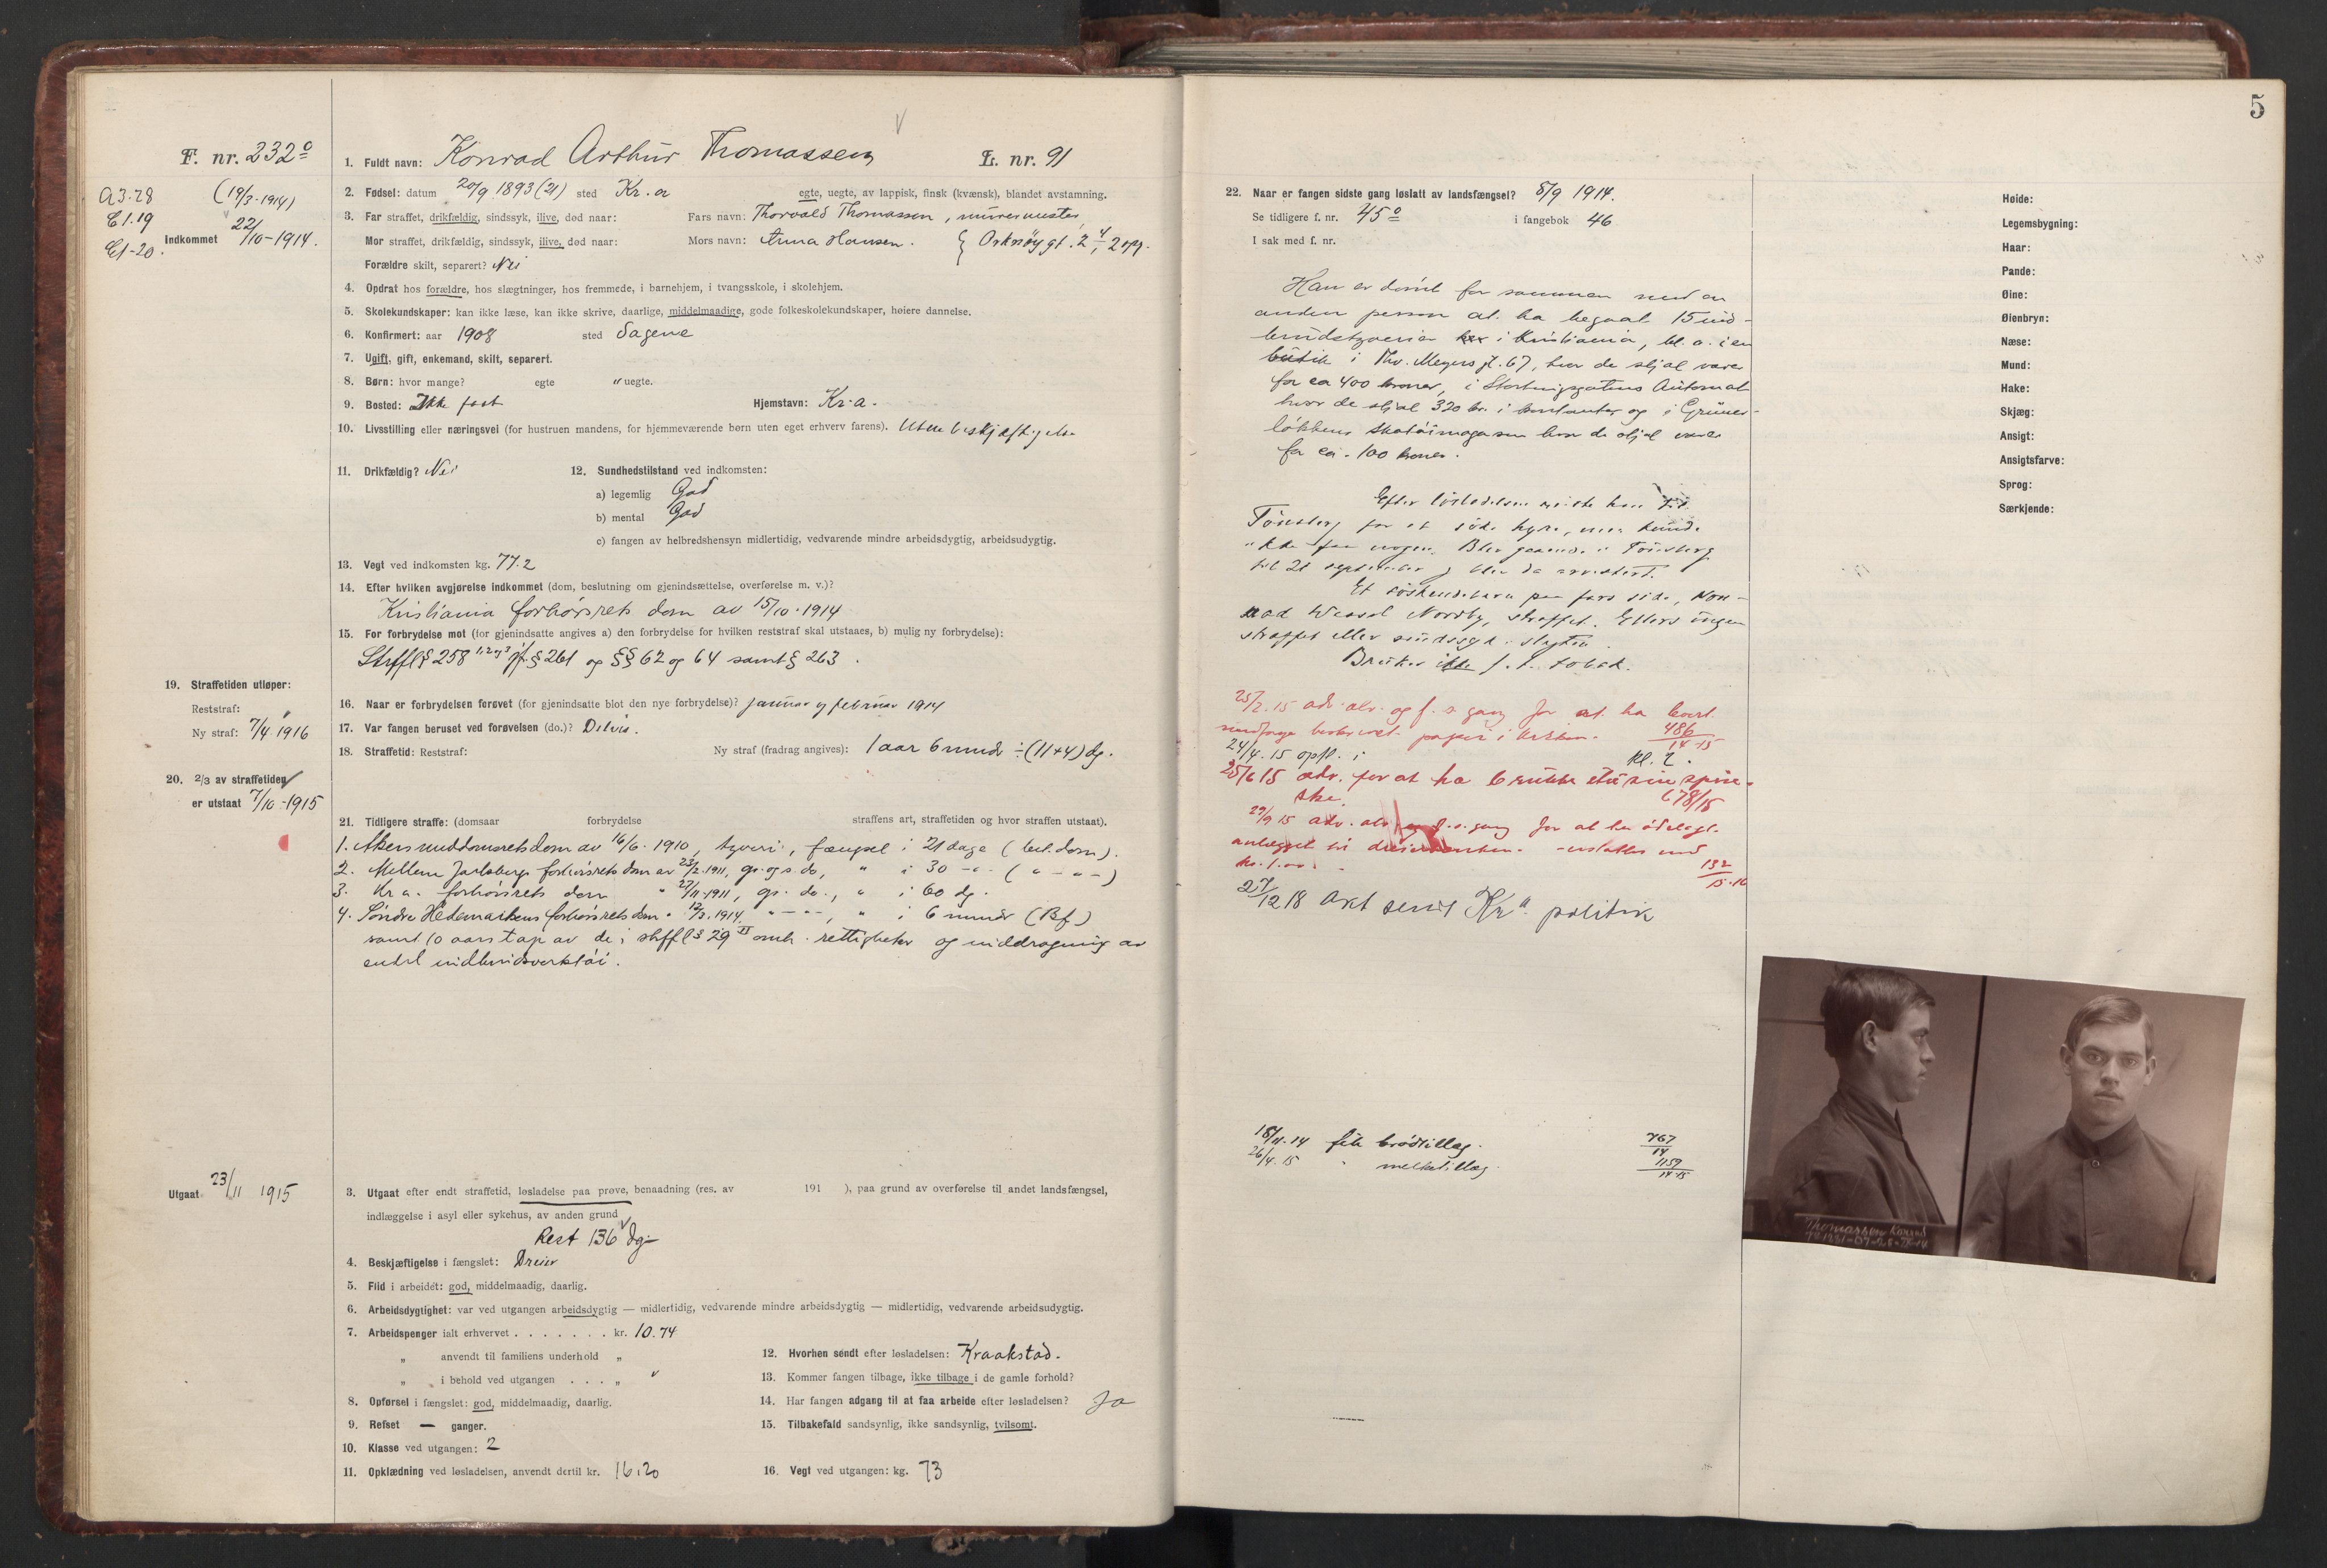 5
F. nr. 232º
1. Fuldt navn: Konrad Arthur Thomassen
L. nr. 91
A3.28
E1.19
E1-20.
(19/3-1914)
Indkommet 22/10-1914.
2. Fødsel: datum 20/9 1893 (21) sted Kr.a egte, uegte, av lappisk, finsk (kvænsk), blandet avstamning.
3. Far straffet, drikfældig, sindssyk, ilive, død naar: Fars navn: Thorvald Thomassen, murermester
Mor straffet, drikfældig, sindssyk, ilive, død naar: Mors navn: Anna Hansen.
Forældre skilt, separert? Nei
4. Opdrat hos forældre, hos slægtninger, hos fremmede, i barnehjem, i tvangsskole, i skolehjem.
5. Skolekundskaper: kan ikke læse, kan ikke skrive, daarlige, middelmaadige, gode folkeskolekundskaper, høiere dannelse.
6. Konfirmert: aar 1908 sted Sagene
7. Ugift, gift, enkemand, skilt, separert.
8. Børn: hvor mange? egte " uegte.
9. Bosted: Ikke fast Hjemstavn: Kr.a.
10. Livsstilling eller næringsvei (for hustruen mandens, for hjemmeværende børn uten eget erhverv farens). Uten beskjæftigelse
11. Drikfældig? Nei
12. Sundhedstilstand ved indkomsten:
a) legemlig God
b) mental God
c) fangen av helbredshensyn midlertidig, vedvarende mindre arbeidsdygtig, arbeidsudygtig.
13. Vegt ved indkomsten kg. 77.2
14. Efter hvilken avgjørelse indkommet (dom, beslutning om gjenindsættelse, overførelse m. v.)?
Kristiania forhørsrets dom av 15/10-1914
15. For forbrydelse mot (for gjenindsatte angives a) den forbrydelse for hvilken reststraf skal utstaaes, b) mulig ny forbrydelse):
Strffl § 258 1, 2 og 3 jfr. § 261 og §§ 62 og 64 samt § 263.
16. Naar er forbrydelsen førøvet (for gjenindsatte blot den nye forbrydelse)? januar og februar 1914
17. Var fangen beruset ved forøvelsen (do.)? Delvis.
18. Straffetid: Reststraf: Ny straf (fradrag angives): 1 aar 6 mndr ÷ (11+4) dg.
19. Straffetiden utløper:
Reststraf:
Ny straf: 7/4 1916
20. 2/3 av straffetiden
er utstaat 7/10-1915
21. Tidligere straffe: (domsaar forbrydelse straffens art, straffetiden og hvor straffen utstaat).
1. Akers meddomsrets dom av 16/6-1910, tyveri, fængsel i 21 dage (bet. dom).
2. Mellem Jarlsbergs forhørsrets dom av 23/2-1911, gr. og s. do, " i 30 -"- ( " - " - )
3. Kr.a. forhørsrets dom " 27/11-1911, gr. do., " i 60 dg.
4. Søndre Hedemarkens forhørsrets dom " 12/3.1914, " - " -, " i 6 mndr (Bf)
samt 10 aars tap av de i strffl § 29 II omh. rettigheter og inddragning av
endel indbrudsverktøi.
Utgaat 23/11 1915
3. Utgaat efter endt straffetid, løsladelse paa prøve, benaadning (res. av 191 ), paa grund av overførelse til andet landsfængsel,
indlæggelse i asyl eller sykehus, av anden grund
Rest 136 dg
4. Beskjæftigelse i fængslet: Dreier
5. Flid i arbeidet: god, middelmaadig, daarlig.
6. Arbeidsdygtighet: var ved utgangen arbeidsdygtig — midlertidig, vedvarende mindre arbeidsdygtig — midlertidig, vedvarende arbeidsudygtig.
7. Arbeidspenger ialt erhvervet . . . . . . . kr. 10.74
„ anvendt til familiens underhold „
„ i behold ved utgangen . . . „
8. Opførsel i fængslet: god, middelmaadig, daarlig.
9. Refset — ganger.
10. Klasse ved utgangen: 2
11. Opklædning ved løsladelsen, anvendt dertil kr. 16.20
12. Hvorhen sendt efter løsladelsen: Kraakstad.
13. Kommer fangen tilbage, ikke tilbage i de gamle forhold?
14. Har fangen adgang til at faa arbeide efter løsladelsen? Ja
15. Tilbakefald sandsynlig, ikke sandsynlig, tvilsomt.
16. Vegt ved utgangen: kg. 73
22. Naar er fangen sidste gang løslatt av landsfængsel? 8/9 1914.
Se tidligere f. nr. 45º i fangebok 46
I sak med f. nr.
Han er dømt for sammen med en
anden person at ha begaat 15 ind-
brudstyverier i Kristiania, bl. a. i en
butik i Thv. Meyers gt. 67, hvor de stjal varer
for ca 400 kroner, i Stortingsgatens Automat
hvor de stjal 320 kr. i kontanter og i Grüner-
løkkens skotøimagasin hvor de stjal varer
for ca. 100 kroner.
Efter løsladelsen reiste han til
Tønsberg for at søke hyre, men kunde
ikke faa nogen. Blev gaaende i Tønsberg
til 21 september og blev da arrestert.
Et søskendebarn paa fars side, Kon-
rad Wessel Nordby, straffet. Ellers ingen
straffet eller sindssyk i slegten.
Bruker ikke tobak.
25/2.15 adv. alv. og f. s. gang for at ha levert
medfange beskrevet papir i kirken. 486/14-15
24/4.15 opfl. i kl. 2.
25/6 15 adv. for at ha brukket itu sin spise-
ske. 678/15
29/9 15 adv. alv. og f. s. gang for at ha ødelagt
132/15-16
27/12 18 Akt sendt Kr.a politik
18/11.14 fik brødtillæg. 767/14
26/4.15 " melketillæg. 1159/14-15
Høide:
Legemsbygning:
Haar:
Pande:
Øine:
Øienbryn:
Næse:
Mund:
Hake:
Skjæg:
Ansigt:
Ansigtsfarve:
Sprog:
Særkjende:
Thomassen Konrad